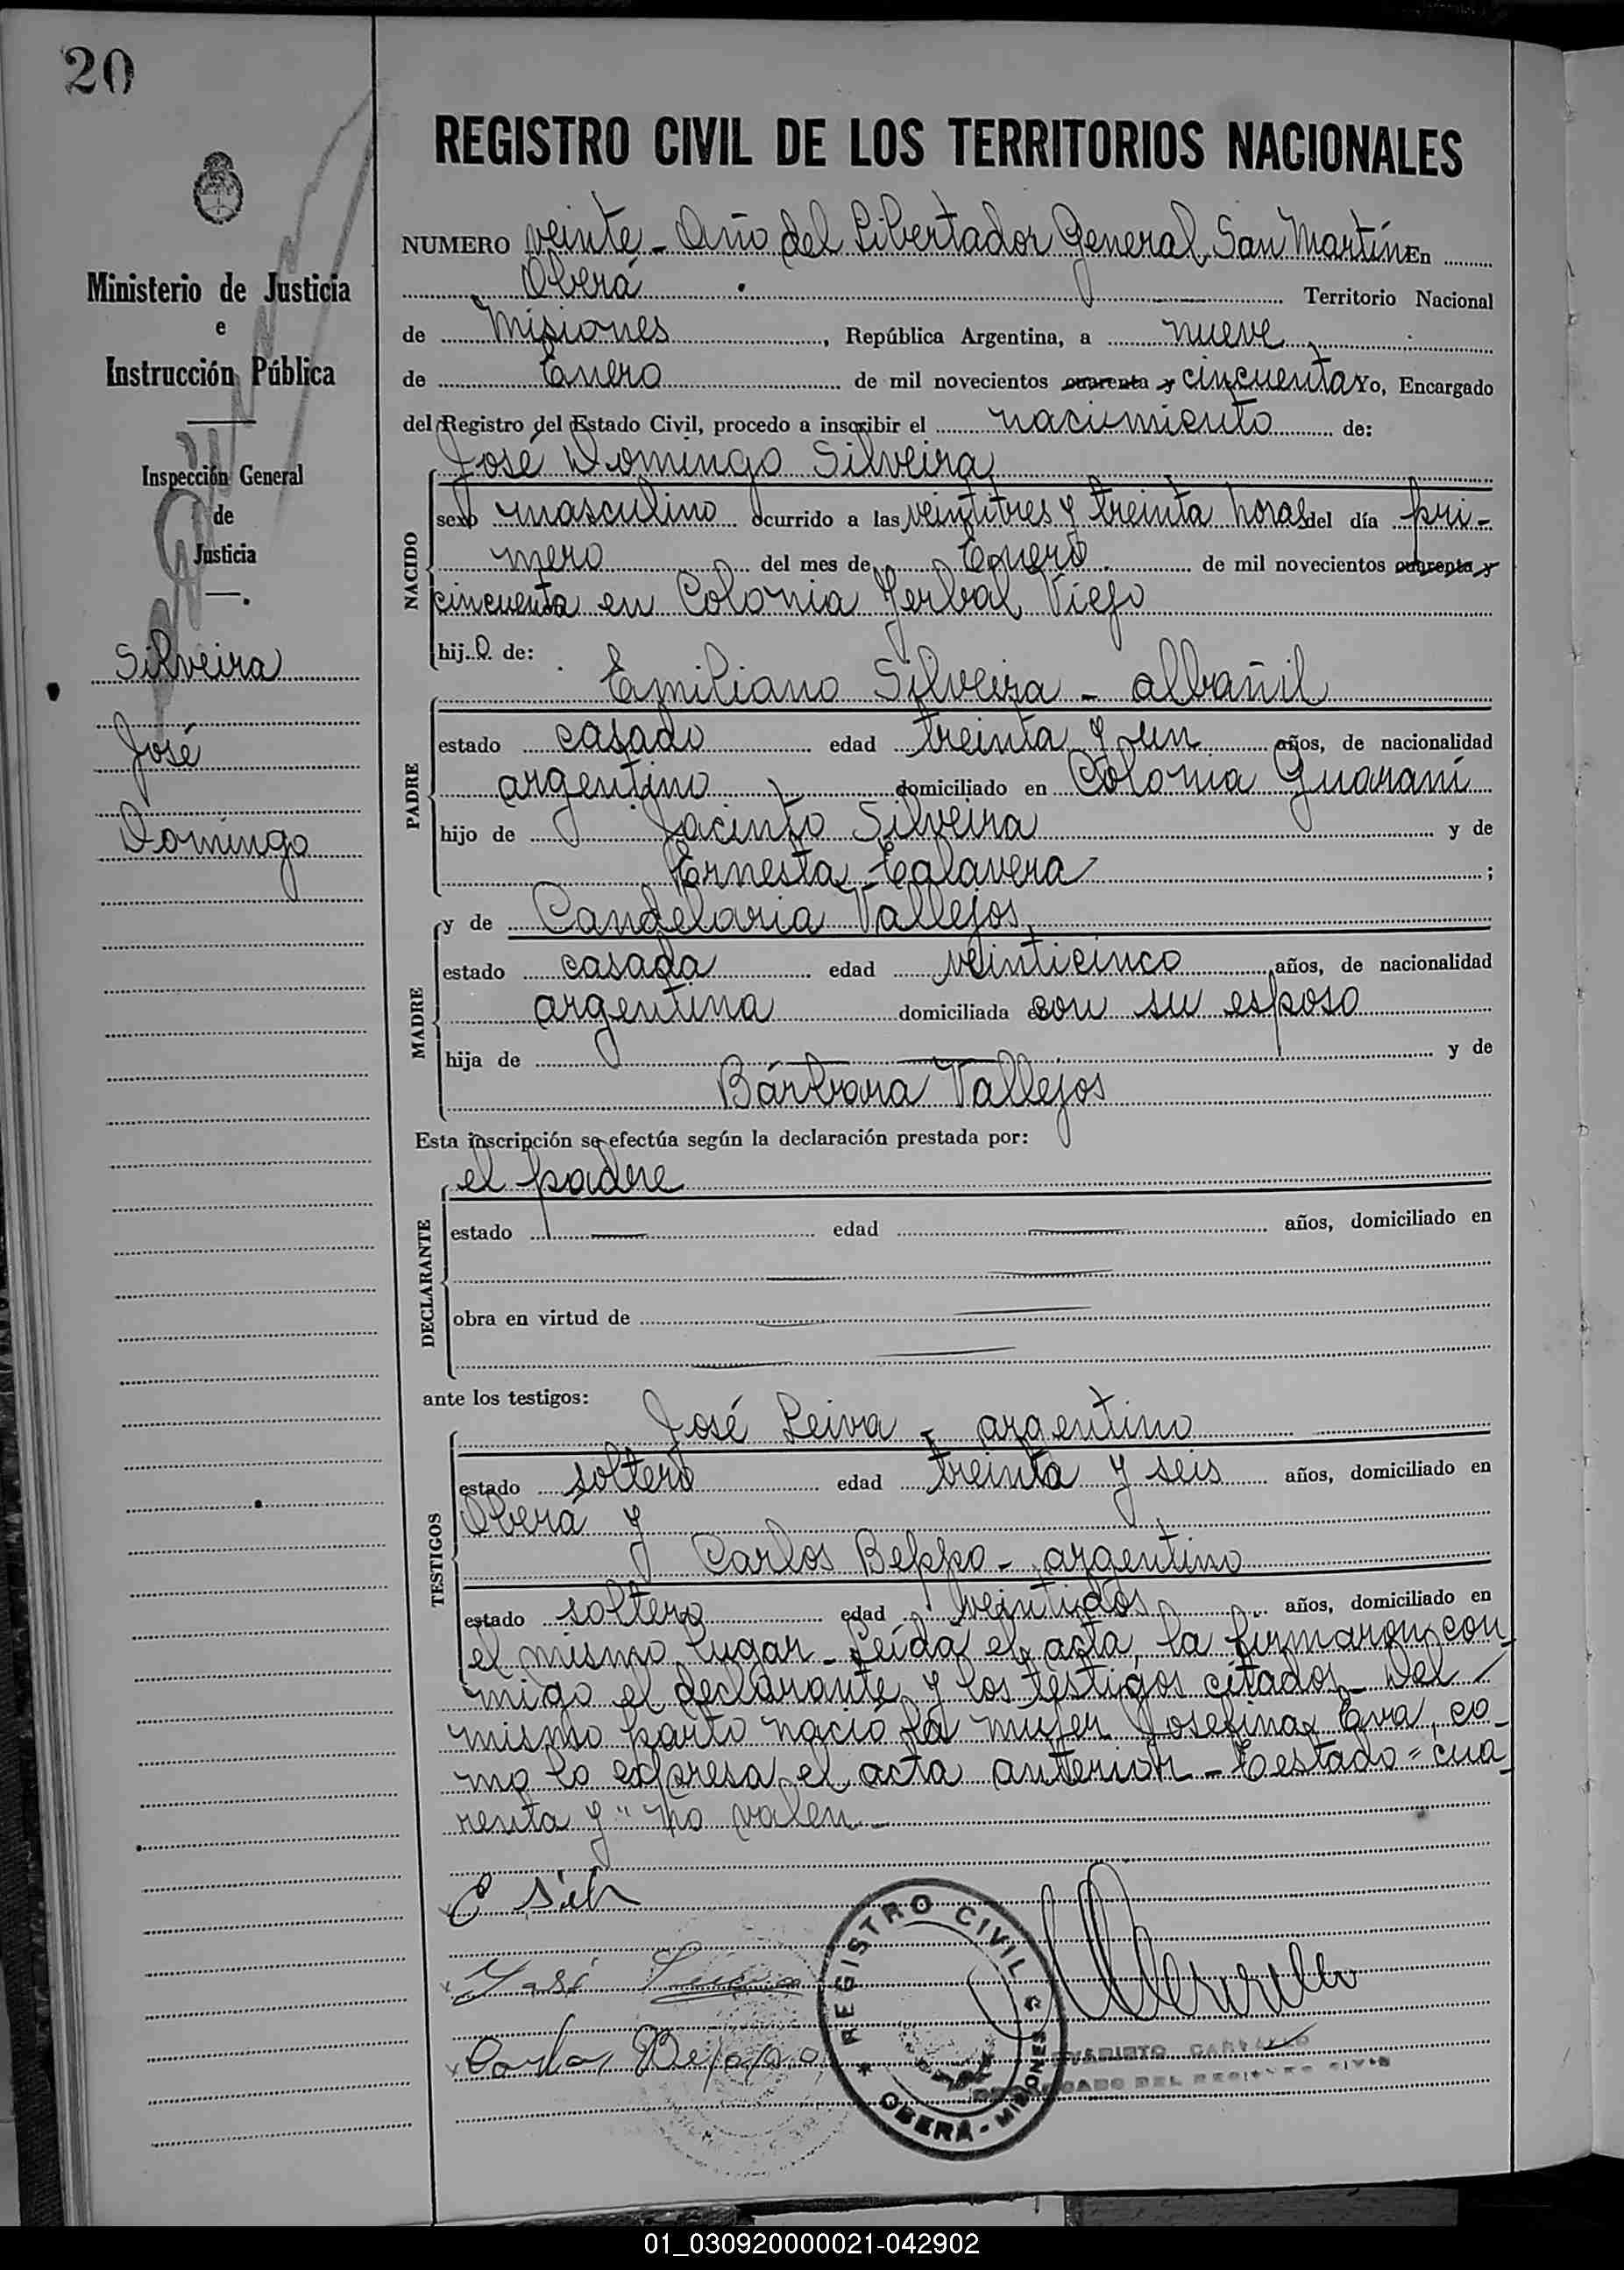 20
REGISTRO CIVIL DE LOS TERRITORIOS NACIONALES
Ministerio de Justicia
e
Instrucción Pública
Inspección General
de
Justicia
Silveira
José
Domingo
NUMERO veinte - Año del Libertador General San Martín En
Oberá Territorio Nacional
de Misiones, República Argentina, a nueve
de Enero de mil novecientos cuarenta y cincuenta Yo, Encargado
del Registro del Estado Civil, procedo a inscribir el nacimiento de:
José Domingo Silveira
NACIDO
sexo masculino ocurrido a las veintitres y treinta horas del día pri-
mero del mes de Enero de mil novecientos cuarenta y
cincuenta en Colonia Yerbal Viejo
hijo de:
Emiliano Silveira - albañil
PADRE
estado casado edad treinta y un años, de nacionalidad
argentino domiciliado en Colonia Guaraní
hijo de Jacinto Silveira y de
Ernesta Talavera;
y de Candelaria Vallejos
MADRE
estado casada edad veinticinco años, de nacionalidad
argentina domiciliada con su esposo
hija de y de
Bárbara Vallejos
Esta inscripción se efectúa según la declaración prestada por:
el padre
DECLARANTE
estado edad años, domiciliado en
obra en virtud de
ante los testigos:
José Leiva - argentino
TESTIGOS
estado soltero edad treinta y seis años, domiciliado en
Oberá y
Carlos Beppo - argentino
estado soltero edad veintidos años, domiciliado en
el mismo lugar - Leída el acta, la firmaron con-
migo el declarante y los testigos citados - Del
mismo parto nació la mujer Josefina Eva, co-
mo lo expresa el acta anterior - Testado = "cua-
renta y" no valen -
José Leiva
Carlos Beppo
REGISTRO CIVIL
OBERA - MISIONES
EVARISTO CARRILLO
ENCARGADO DEL REGISTRO CIVIL
01_030920000021-042902